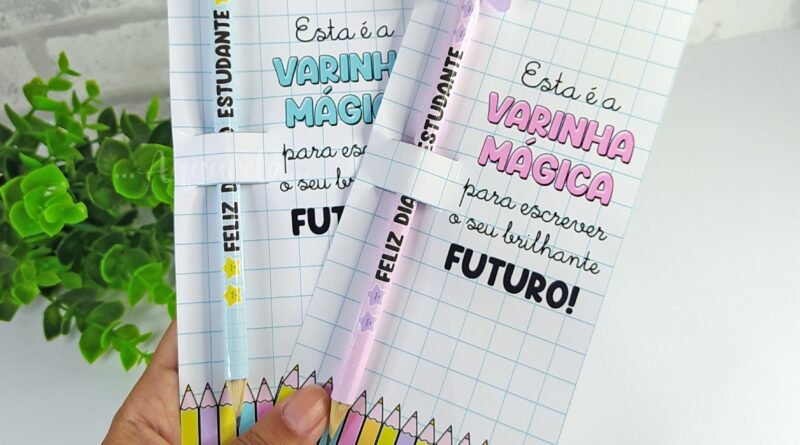 Esta é a
VARINH
MÁGIC
para esc
o seu br
FUT
FELIZ D
O ESTUDANTE
Esta é a
VARINHA
MÁGICA
para escrever
o seu brilhante
FUTURO!
FELIZ DIA
ESTUDANTE